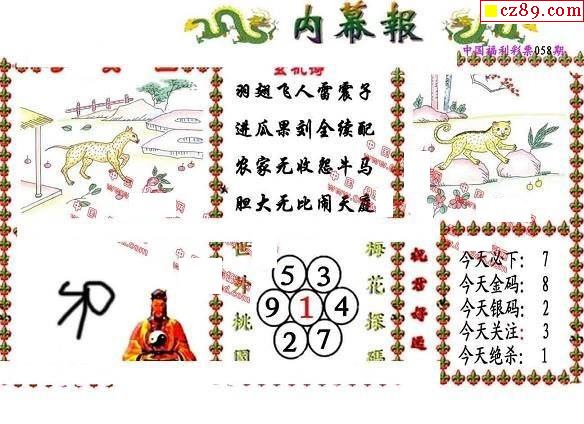 cz89.com
内幕報
中国福利彩票058期
玄机诗
羽翅飞人雷震子
进瓜果刘全续配
农家无收怨牛马
胆大无比闹天庭
世外桃園
5 3
9 1 4
2 7
梅花探碼
祝君好运
今天必下： 7
今天金码： 8
今天银码： 2
今天关注： 3
今天绝杀： 1